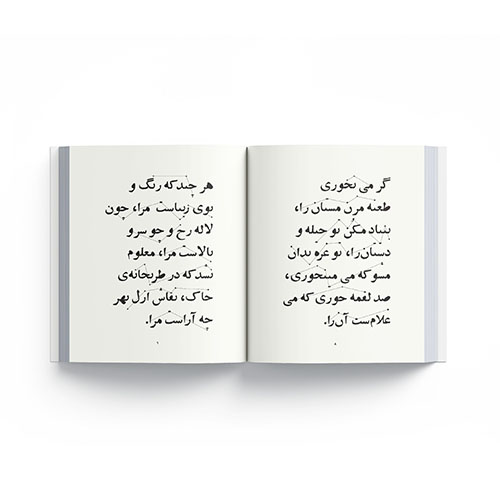 گر می نخوری
طعنه مزن مستان را،
بنیاد مکن تو حیله و
دستان‌را، تو غره بدان
مشو که می مینخوری،
صد لقمه خوری که می
غلام‌ست آن‌را.
۸
هر چند که رنگ و
بوی زیباست مرا، چون
لاله رخ و چو سرو
بالاست مرا، معلوم
نشد که در طربخانه‌ی
خاک، نقاش ازل بهر
چه آراست مرا.
۹